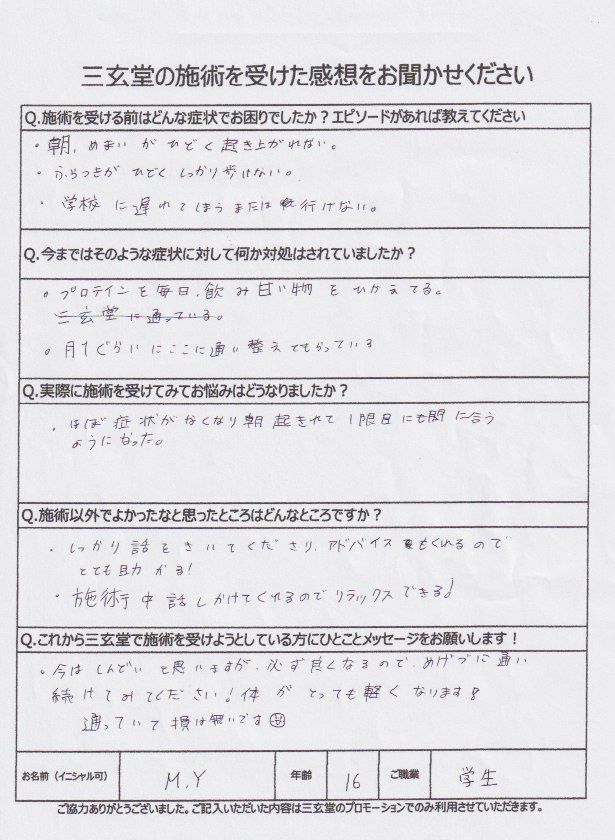 三玄堂の施術を受けた感想をお聞かせください
Q.施術を受ける前はどんな症状でお困りでしたか？エピソードがあれば教えてください
・朝、めまいがひどく起き上がれない。
・ふらつきがひどくしっかり歩けない。
・学校に遅れてしまうまたは行けない。
Q.今まではそのような症状に対して何か対処はされていましたか？
。プロテインを毎日、飲み甘い物をひかえてる。
三玄堂に通っている。
。月1ぐらいにここに通い整えてもらっている
Q.実際に施術を受けてみてお悩みはどうなりましたか？
・ほぼ症状がなくなり朝起きれて1限目にも間に合う
ようになった。
Q.施術以外でよかったなと思ったところはどんなところですか？
・しっかり話をきいてくださり、アドバイスもくれるので
とても助かる！
・施術中話しかけてくれるのでリラックスできる♪
Q.これから三玄堂で施術を受けようとしている方にひとことメッセージをお願いします！
・今はしんどいと思いますが、必ず良くなるので、めげづに通い
続けてみてください！体がとっても軽くなります！
通っていて損は無いです☺
お名前（イニシャル可） M.Y 年齢 16 ご職業 学生
ご協力ありがとうございました。ご記入いただいた内容は三玄堂のプロモーションでのみ利用させていただきます。